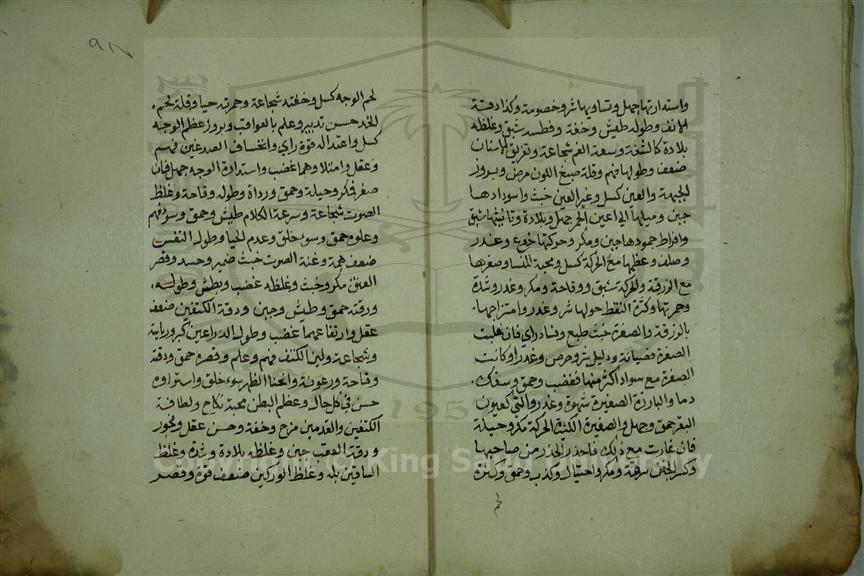 واستدارتها جهل وتساويها شر وخصومة وكذا دقة
الانف وطوله طيش وخفة وفطسه شبق وغلظه
بلادة كالشفة وسعة الفم شجاعة وتفريق الاسنان
ضعف وطولها فهم وقلة صبغ اللون مرض وبروز
الجبهة والعين كسل وغير العين خبث واسودادها
جبن وميلها الى اعين الخمر جهل وبلادة وتانيثها شبق
وافراط جمودها جبن ومكر وحركتها خدع وغدر
وصلف وعظمها مع الحركة كسل ومحبة للنسا وصغرها
مع الزرقة والحركة شبق ووقاحة ومكر وغدر وشدة
وحمرتها وكثرة النقط حولها شر وغدر وامتزاجها
بالزرقة والصفرة خبث طبع وفساد راي فان غلبت
الصفرة فصيانة ودليل شر وحرص وغدر او كانت
الصفرة مع سواد اكثر منها فغضب وحمق وسفك
دما والبارزة الصغيرة شهوة وغدر والتي كعيون
البقر حمق وجهل والصغيرة الكثيرة الحركة مكر وحيلة
فان غارت مع ذلك فاحذر الحذر من صاحبها
وكسر الجفن سرقة ومكر واحتيال وكذب وحمق وكثرة
لحم
لحم الوجه كسل وخفته شجاعة وحمرته حيا وقلة لحم
الخد حسن تدبير وعلم بالعواقب وبروز عظم الوجه
كسل واعتداله قوة راي وانخساف الصدغين فهم
وعقل وامتلاوهما غضب واستدارة الوجه جهل فان
صغر فكر وحيلة وحمق ورداة وطوله وقاحة وغلظ
الصوت شجاعة وسرعة الكلام طيش وحمق وسؤ فهم
وعلوه حمق وسوء خلق وعدم الحيا وطول النفس
ضعف همة وغنة الصوت خبث ضمير وحسد وقصر
العنق مكر وخبث وغلظه غضب وبطش وطوله
ورقته حمق وطيش وجبن ودقة الكتفين ضعف
عقل وارتفاعهما غضب وطول الذراعين كبر ورياسة
وشجاعة ولين الكتف فهم وعلم وقصره حمق ودقة
وقاحة ورعونة وانحنا الظهر سوء خلق واستواوه
حسن في كل حال وعظم البطن محبة نكاح ولطافة
الكتفين والقدمين مزح وخفة وحسن عقل وفجور
ودقة العقب جبن وغلظه بلادة وشدة وغلظ
الساقين بله وغلظ الوركين ضعف قوة وقصر